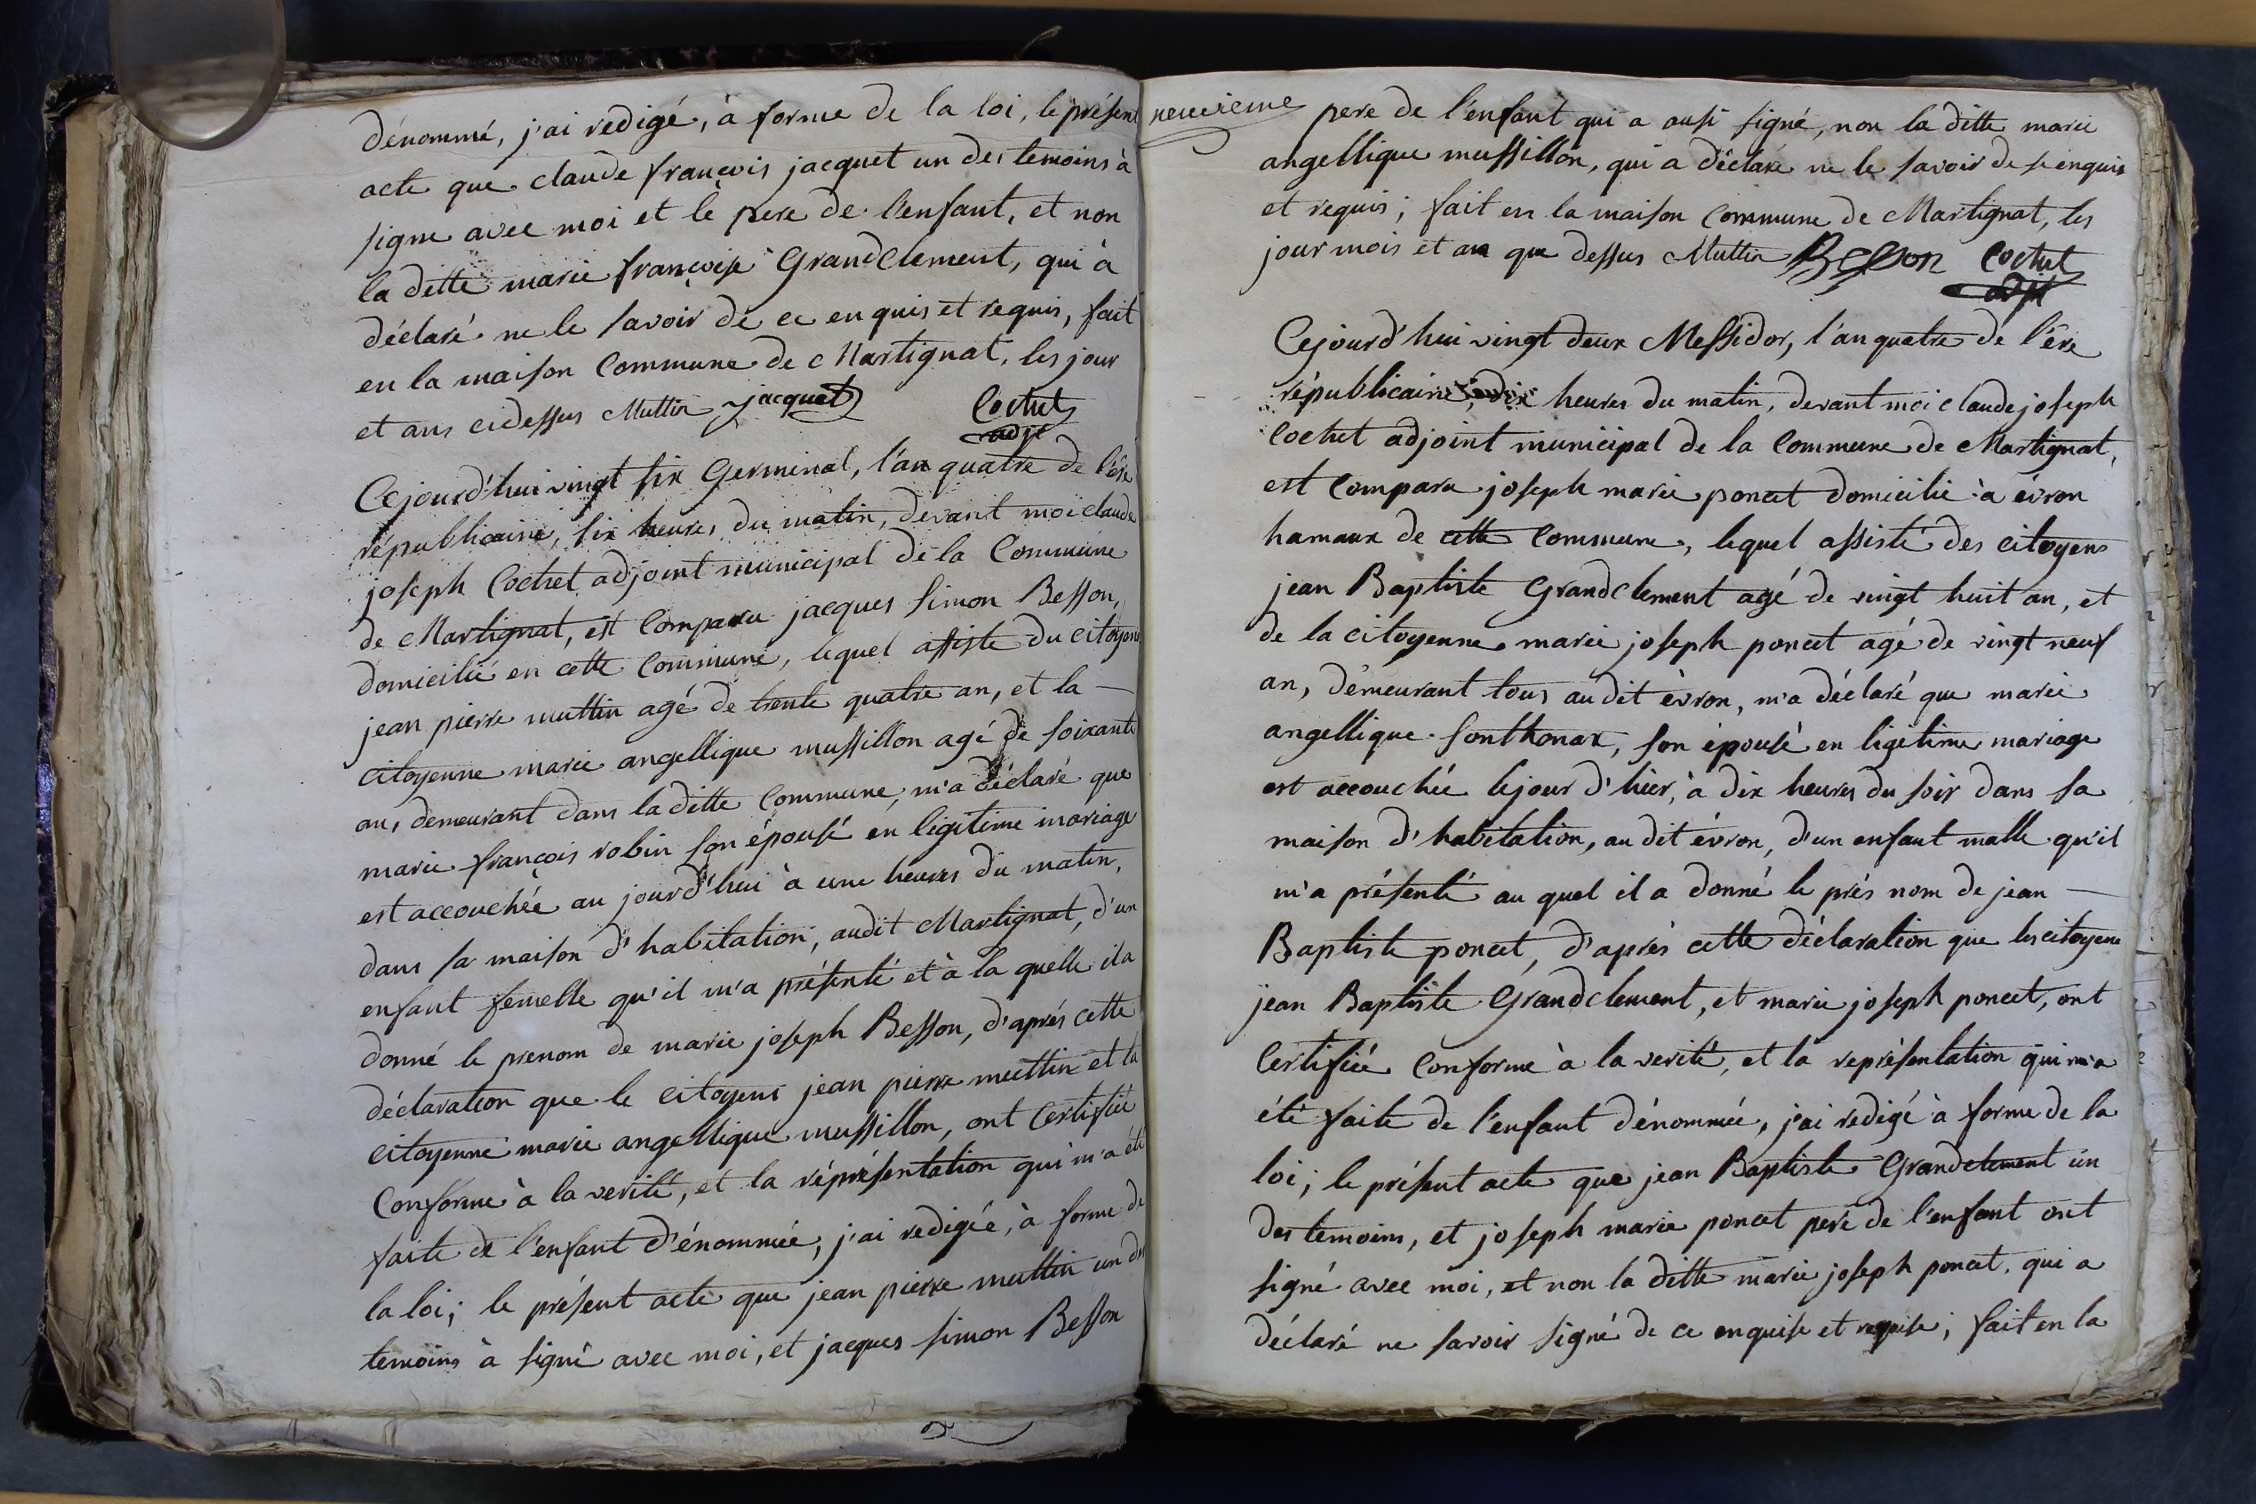 dénommé, j'ai redigé, à forme de la loi, le présent
acte que claude françois jacquet un des temoins à
signe avec moi et le pere de l'enfant, et non
la ditte marie françoise Grandclement, qui à
déclaré ne le savoir de ce en quis et requis, fait
en la maison Commune de Martignat, les jour
et ans cidessus Muttin jacquet Cochet
adjt
Cejourd'hui vingt six Germinal, l'an quatre de l'ère
républicaine, six heures du matin, devant moi claude
joseph Cochet adjoint municipal de la Commune
de Martignat, est Comparu jacques simon Besson,
domicilié en cette Commune, lequel assiste du citoyens
jean pierre muttin agé de trente quatre an, et la
citoyenne marie angellique mussillon agé de soixante
an, demeurant dans la ditte Commune, m'a déclaré que
marie françois robin son épousé en légitime mariage
est accouchée au jourd'hui à une heures du matin,
dans sa maison d'habitation, audit Martignat, d'un
enfant femelle qu'il m'a présenté et à la quelle il a
donné le prenom de marie joseph Besson, d'aprés cette
déclaration que le citoyens jean pierre muttin et la
citoyenne marie angellique mussillon, ont Certifiée
Conforme à la verité, et la réprésentation qui m'a été
faite de l'enfant d'énommée, j'ai redigée, à forme de
la loi; le présent acte que jean pierre muttin un des
temoins à signé avec moi, et jacques simon Besson
neuvieme
pere de l'enfant qui a ausi signé, non la ditte marie
angellique mussillon, qui a déclaré ne le savoir de se enquis
et requis; fait en la maison Commune de Martignat, les
jour mois et an que dessus Muttin Besson Cochet
adjt
Cejourd'hui vingt deux Messidor, l'an quatre de l'ère
républicaine, dix heures du matin, devant moi claude joseph
Cochet adjoint municipal de la Commune de Martignat,
est Comparu joseph marie poncet domicilié à évron
hamaux de cette Commune, lequel assisté des citoyens
jean Baptiste Grandclement agé de vingt huit an, et
de la citoyenne marie joseph poncet agé de vingt neuf
an, démeurant tous au dit évron, m'a déclaré que marie
angellique sonthonax, son épousé en ligétime mariage
est accouchée lejour d'hier, à dix heures du soir dans sa
maison d'habitation, au dit évron, d'un enfant malle qu'il
m'a présenté au quel il a donné le prés nom de jean
Baptiste poncet, d'après cette déclaration que les citoyens
jean Baptiste Grandclement, et marie joseph poncet, ont
Certifiée Conforme à la verité, et la représentation qui m'a
été faite de l'enfant dénommée, j'ai redigé à forme de la
loi; le présent acte que jean Baptiste Grandclement un
des temoins, et joseph marie poncet pere de l'enfant ont
signé avec moi, et non la ditte marie joseph poncet, qui a
déclaré ne savoir signé de ce enquise et requise; fait en la